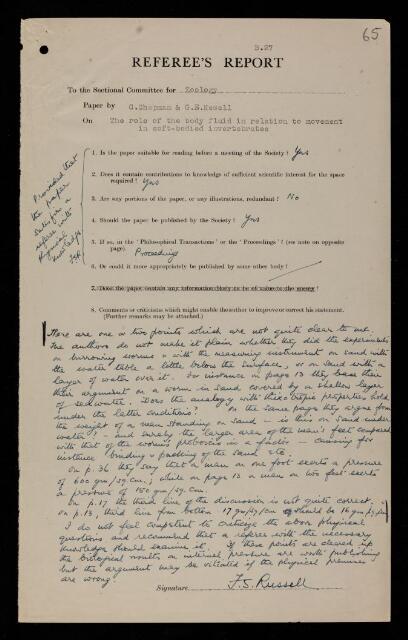 65
B.27
REFEREE'S REPORT
To the Sectional Committee for Zoology
Paper by G.Chapman & G.E.Newell
On The role of the body fluid in relation to movement
in soft-bodied invertebrates
1. Is the paper suitable for reading before a meeting of the Society? Yes
2. Does it contain contributions to knowledge of sufficient scientific interest for the space
required? Yes
3. Are any portions of the paper, or any illustrations, redundant? No
4. Should the paper be published by the Society? Yes
5. If so, in the 'Philosophical Transactions' or the 'Proceedings'? (see note on opposite
page). Proceedings
6. Or could it more appropriately be published by some other body?
7. Does the paper contain any information likely to be of value to the enemy?
8. Comments or criticisms which might enable the author to improve or correct his statement.
(Further remarks may be attached.)
Provided that
the paper
satisfies a
referee with
physical
knowledge
FSR
There are one or two points which are not quite clear to me.
The authors do not make it plain whether they did the experiments
on burrowing worms & with the measuring instrument on sand with
the water table a little below the surface, or on sand with a
layer of water over it. For instance on page 13 they base their
their argument on a worm in sand covered by a shallow layer
of sea water. Does the analogy with thixotropic properties hold
under the latter conditions? On the same page they argue from
the weight of a man standing on sand – is this on sand under
water? – and surely the larger area of the man's feet compared
with that of the worm's proboscis is a factor – causing for
instance binding & packing of the sand etc.
on p.36 they say that a man on one foot exerts a pressure
of 600 gm/sq.cm; while on page 13 a man on two feet exerts
a pressure of 150 gm/sq.cm.
on p.17 the third line of the discussion is not quite correct.
on p.18, third line from bottom 17 gm/sq/cm should be 16 gm/sq/cm
I do not feel competent to criticize the above physical
questions and recommend that a referee with the necessary
knowledge should examine it. If these points are cleared up
the biological results on internal pressure are worth publishing
but the argument may be vitiated if the physical premises
are wrong.
Signature F.S. Russell